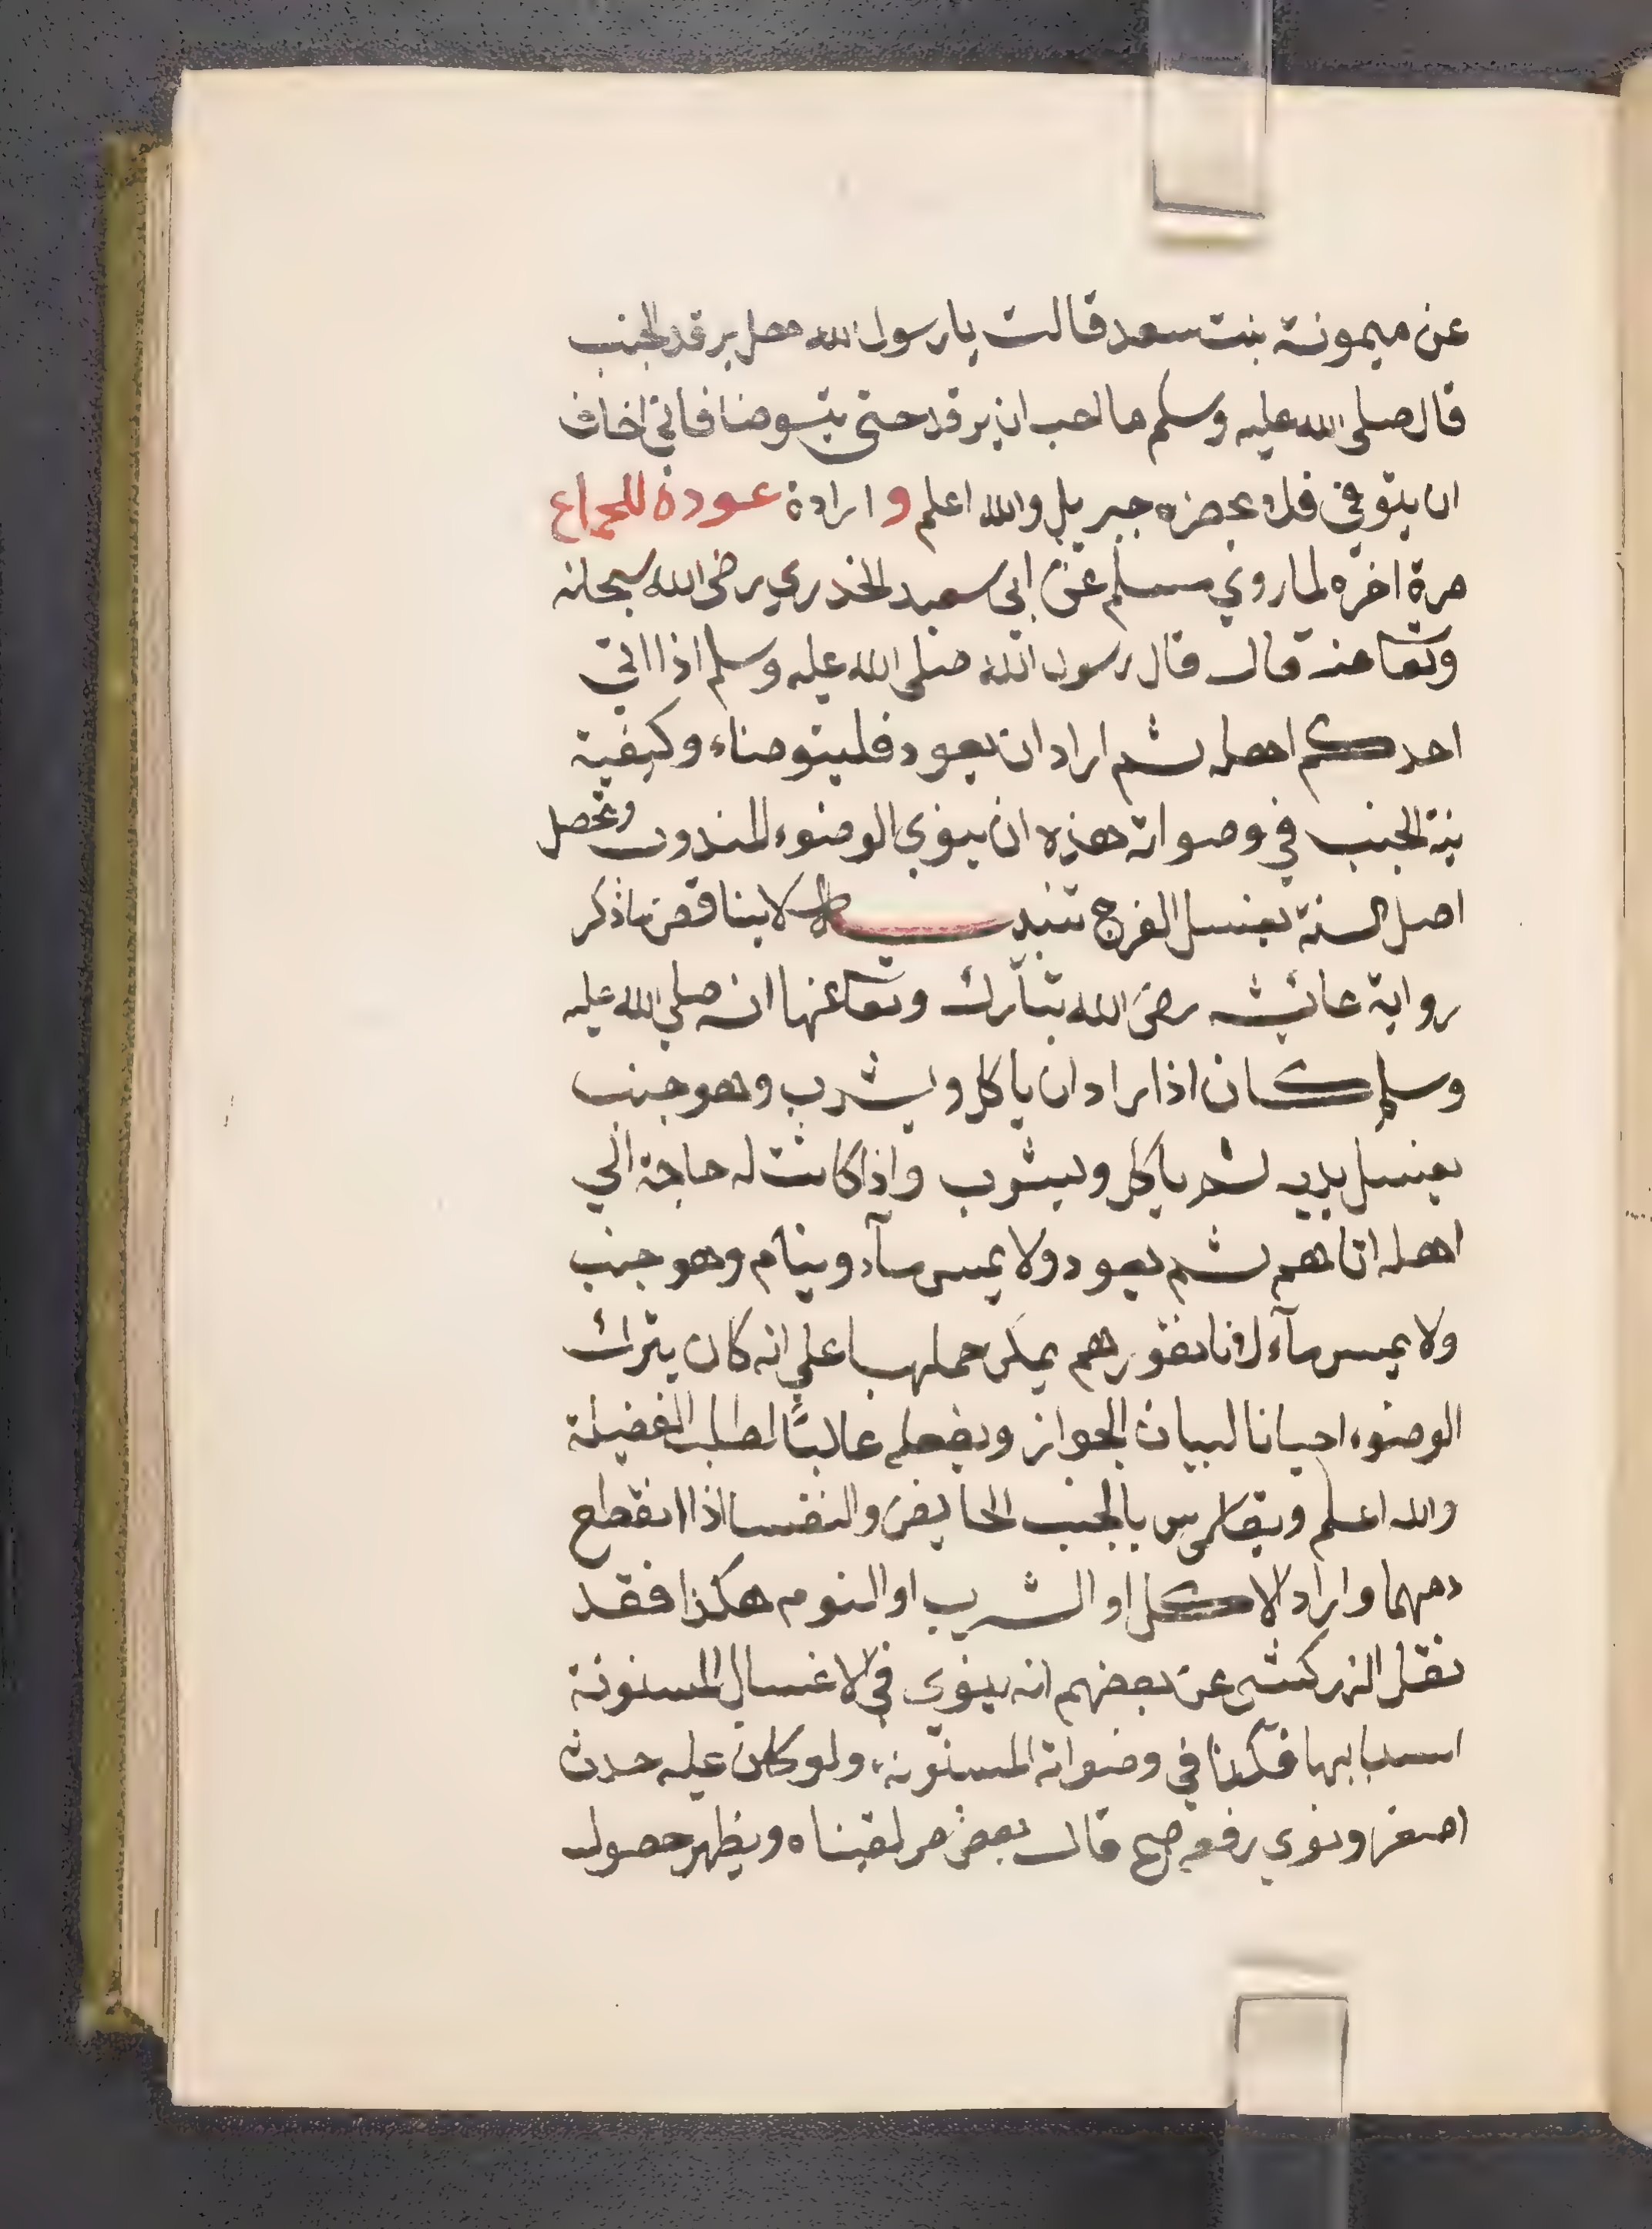 عن ميمونة بنت سعد قالت يا رسول الله هل يرقد الجنب
قال صلى الله عليه وسلم ما احب ان يرقد حتى يتوضا فاني اخاف
ان يتوفي فلا يحضره جبريل والله اعلم و ارادة عودة للجماع
مرة اخره لما روي مسلم عن ابي سعيد الخدري رضى الله سبحانه
وتعا عنه قال قال رسول الله صلى الله عليه وسلم اذا اتي
احدكم اهله ثم اراد ان يعود فليتوضاء وكيفية
نية الجنب في وضواته هذه ان ينوي الوضوء المندوب وتحصل
اصل السنة بغسل الفرج تنبيه لا يناقض ماذكر
رواية عائشه رضى الله تبارك وتعا عنها انه صلى الله عليه
وسلم كان اذا اراد ان ياكل ويشرب وهو جنب
يغسل يديه ثم ياكل ويشرب واذا كانت له حاجة الي
اهله اتاهم ثم يعود ولا يمس مآء وينام وهو جنب
ولا يمس مآء لانا نقول هم يمكن حملها علي انه كان يترك
الوضوء احيانا لبيان الجواز ويفعله غالبًا لطلب الفضيلة
والله اعلم ويقاس بالجنب الحايض والنفسا اذا انقطع
دمهما واراد الاكل او الشرب او النوم هكذا فقد
نقل الزركشي عن بعضهم انه ينوي في الاغسال المسنونة
اسبابها فكذا في وضواته المسنونة ولو كان عليه حدث
اصغر ونوي رفعه صح قال بعض من لقيناه ويظهر حصول